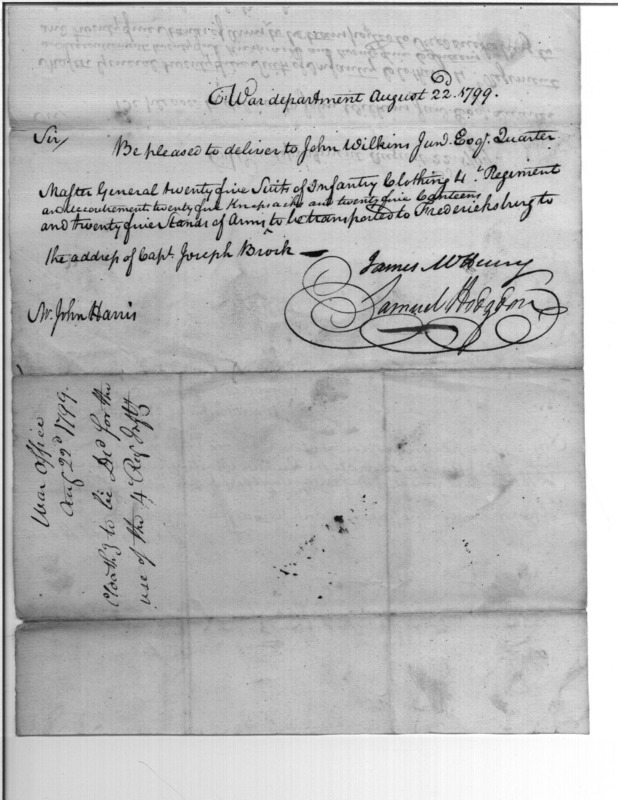 War department August 22d. 1799.
Sir/
Be pleased to deliver to John Wilkins Junr. Esqr. Quarter
Master General twenty five Suits of Infantry Clothing 4th. Regiment
and twenty five Knapsacks and twenty five Canteens
and twenty five Stands of Arms to be transported to Fredericksburg to
the address of Capt. Joseph Brock —
James McHenry
Samuel Hodgdon
Mr. John Harris
War Office
Aug 22d 1799.
to be Dd for the
use of the 4 Regt Infty